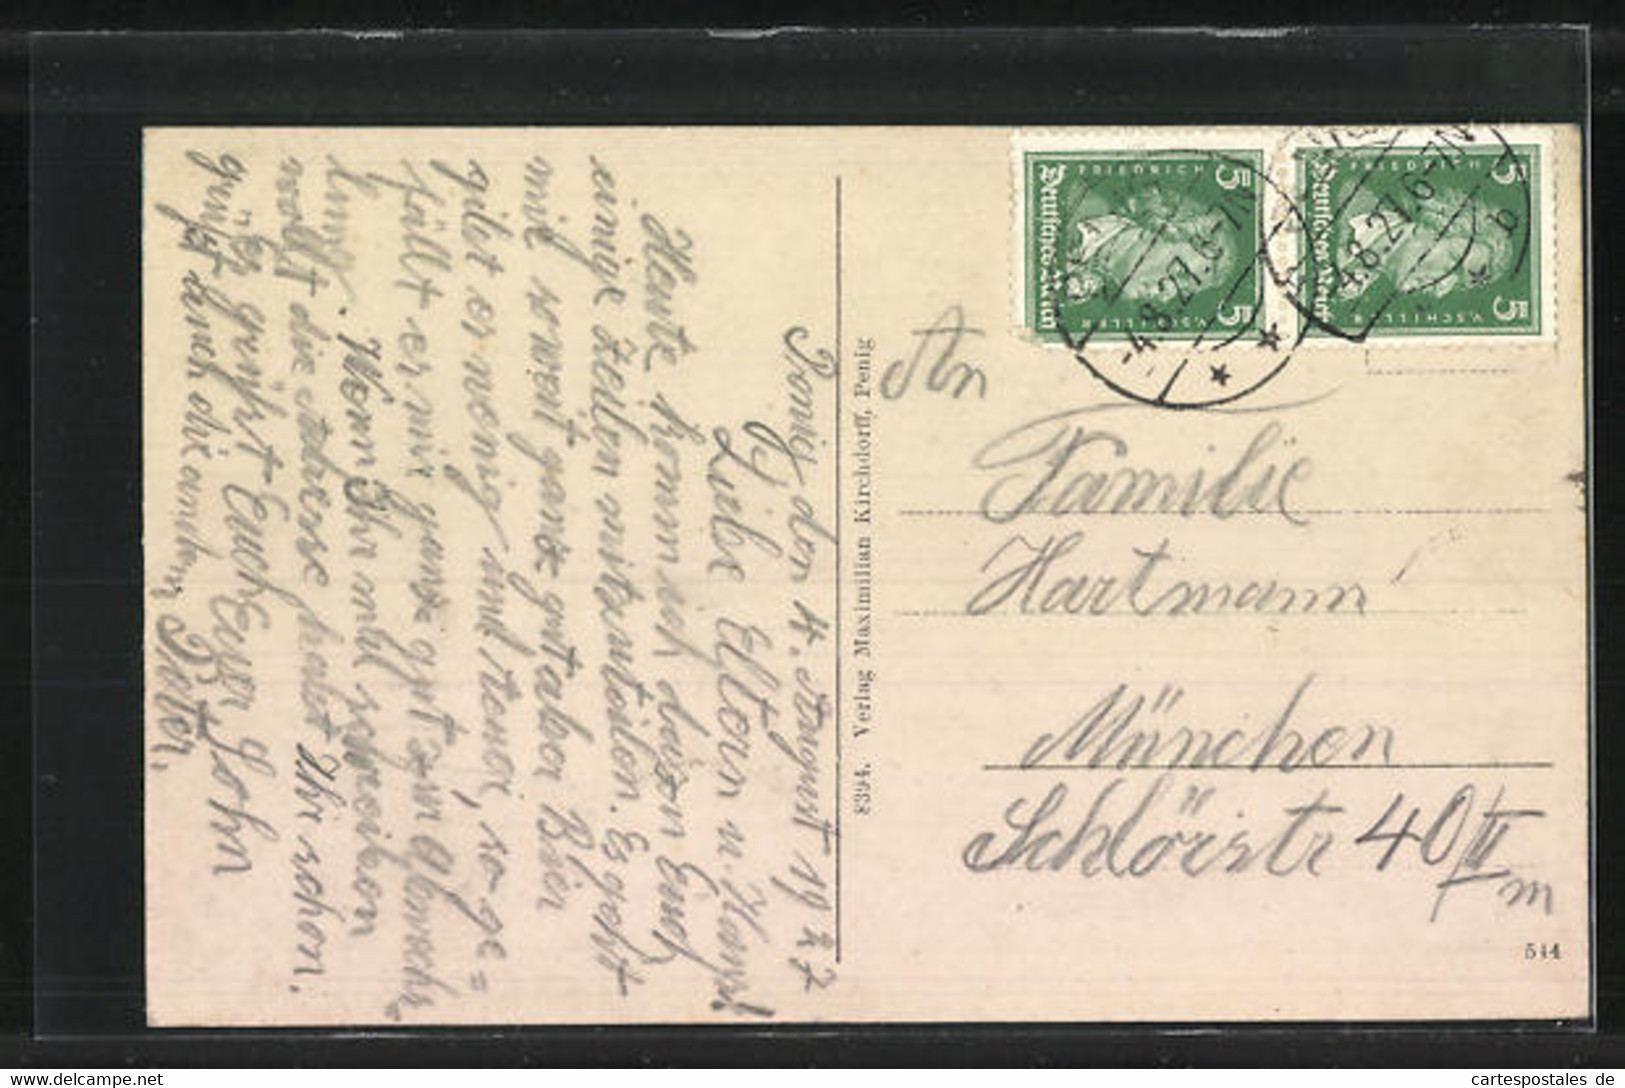 Penig, den 4. August 1927
Liebe Eltern u. Hansl!
Heute komm ich dazu Euch
einige Zeilen mitzuteilen. Es geht
mir soweit ganz gut aber Bier
gibt es wenig und teuer, so ge=
fällt es mir ganz gut
Wenn Ihr mal schreiben
wollt die Adresse habt Ihr schon.
Es grüßt Euch Euer Sohn
grüßt auch die andern, Peter.
8394. Verlag Maximilian Kirchdorff, Penig
An
Familie
Hartmann
München
Schlörstr 40/III
m
544
FRIEDRICH
5
Deutsches Reich
5
V. SCHILLER
FRIEDRICH
5
Deutsches Reich
5
V. SCHILLER
-4.8.27.6-7N
-4.8.27.6-7N
b
cartespostales de